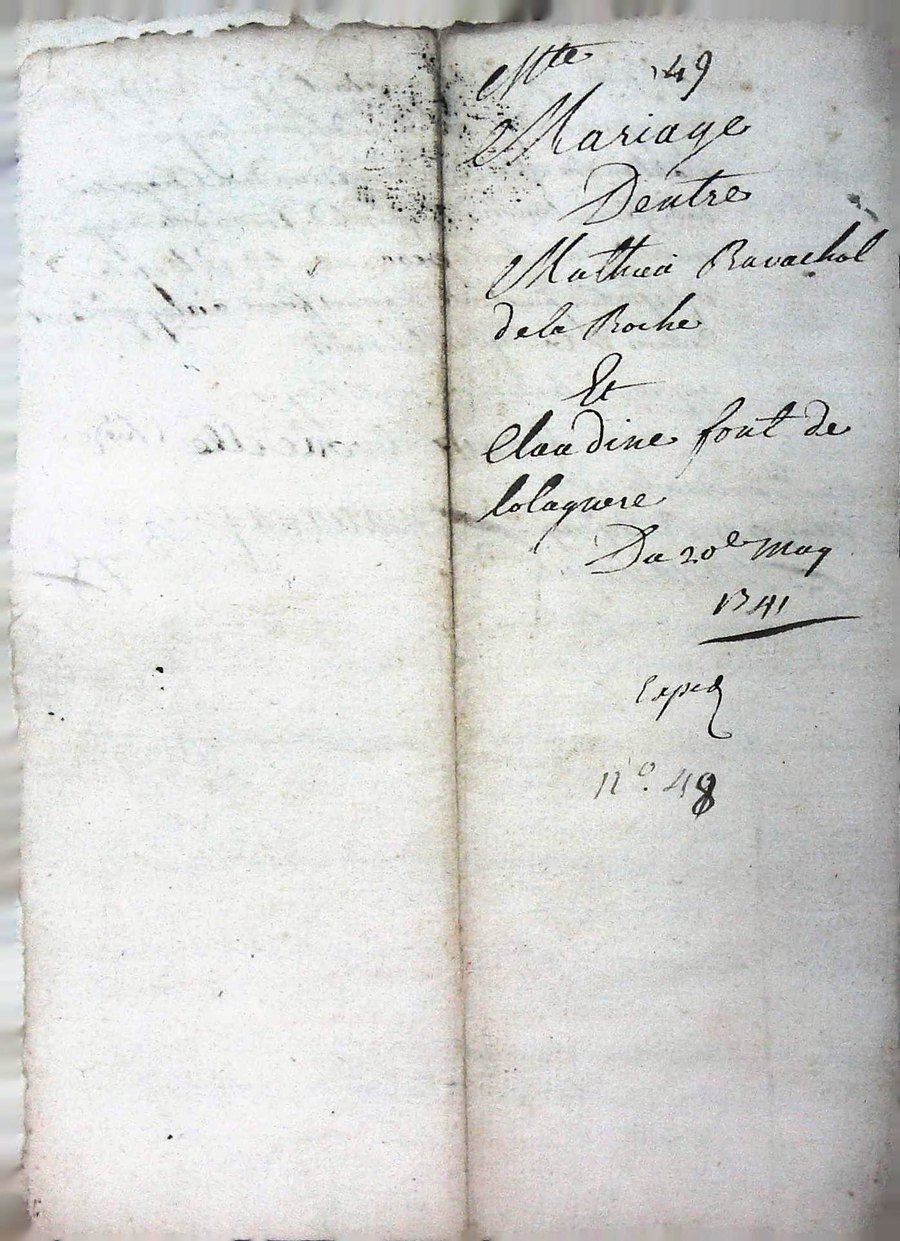 Mte 49
Mariage
Dentre
Mathieu Ravachol
de la Roche
Et
Claudine font de
lolagnere
Du 20e may
1741
Exped
n°. 48